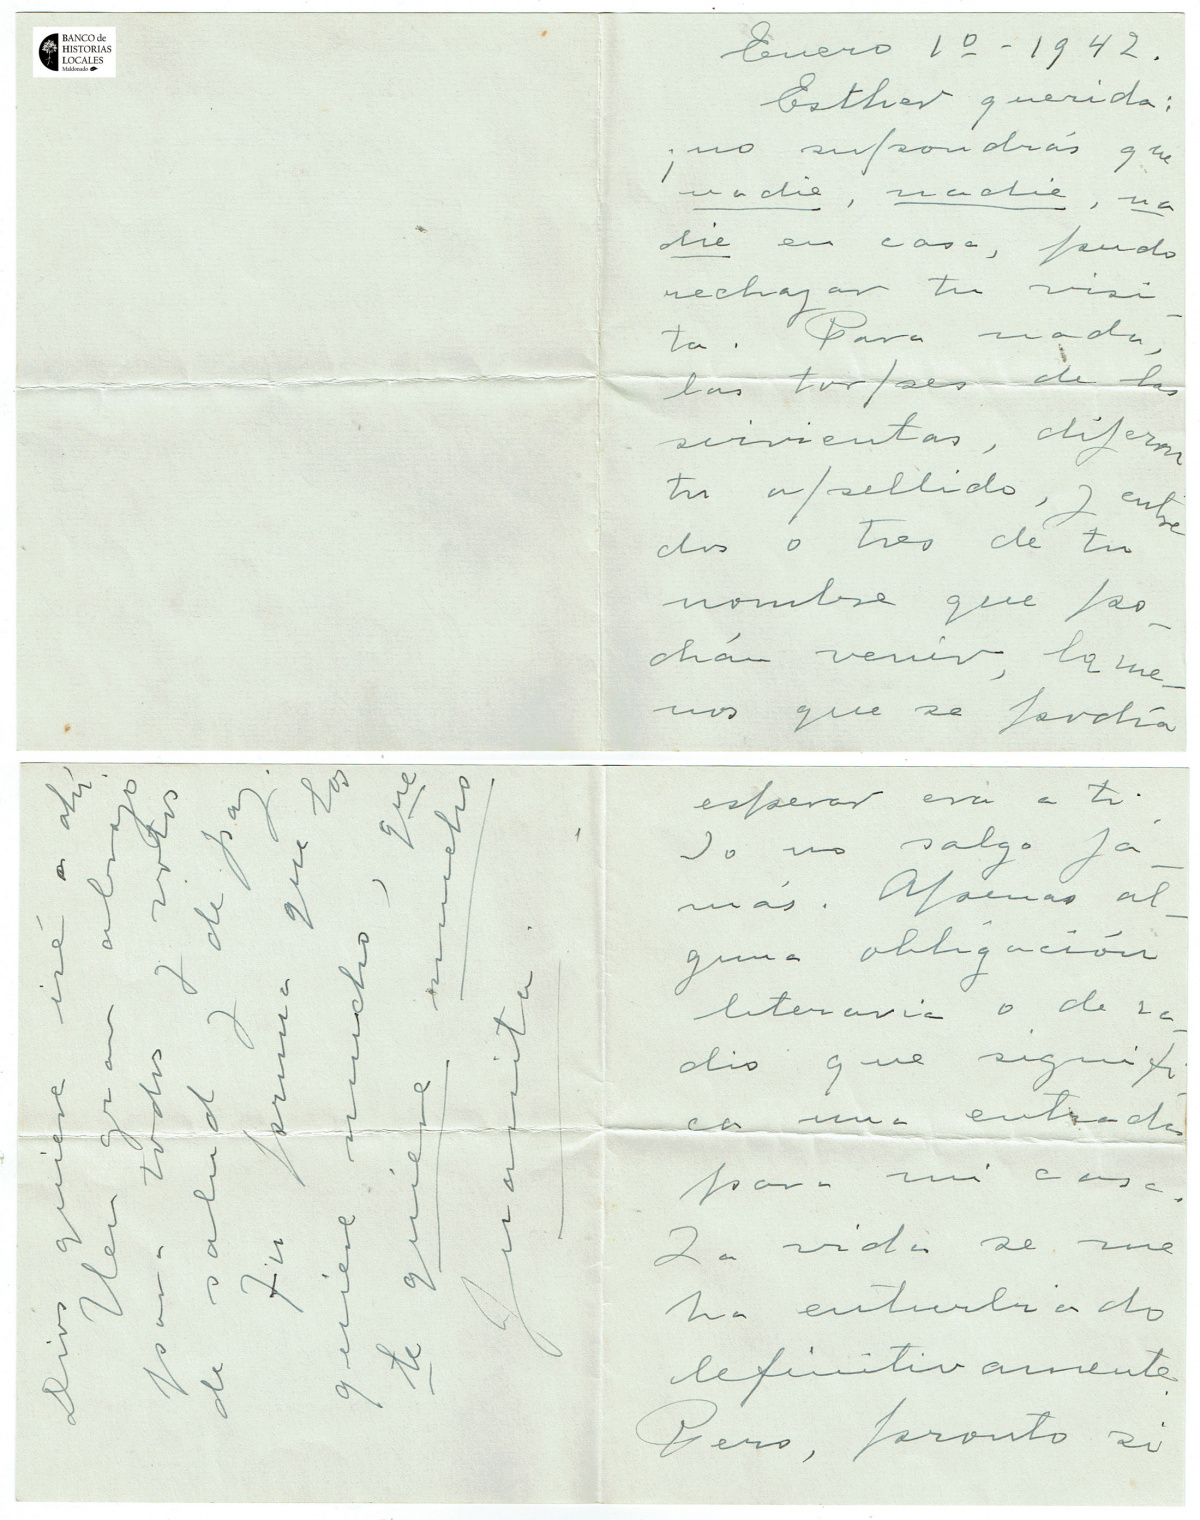 BANCO de
HISTORIAS
LOCALES
Maldonado
Enero 1º - 1942.
Esther querida:
¡no supondrás que
nadie, nadie, na
die en casa, pudo
rechazar tu visi_
ta. Para nada,
las torpes de las
sirvientas, dijeron
tu apellido, y entre
dos o tres de tu
nombre que po_
drán venir, la me_
nos que se podía
esperar era a ti.
Yo no salgo ja_
más. Apenas al_
guna obligación
literaria o de ra_
dio que signifi
ca una entrada
para mi casa.
La vida se me
ha enturbiado
definitivamente.
Pero, pronto si
Dios quiere iré a ahí.
Un gran abrazo
para todos y votos
de salud y de paz.
Tu prima que los
quiere mucho, que
te quiere mucho
Juanita.